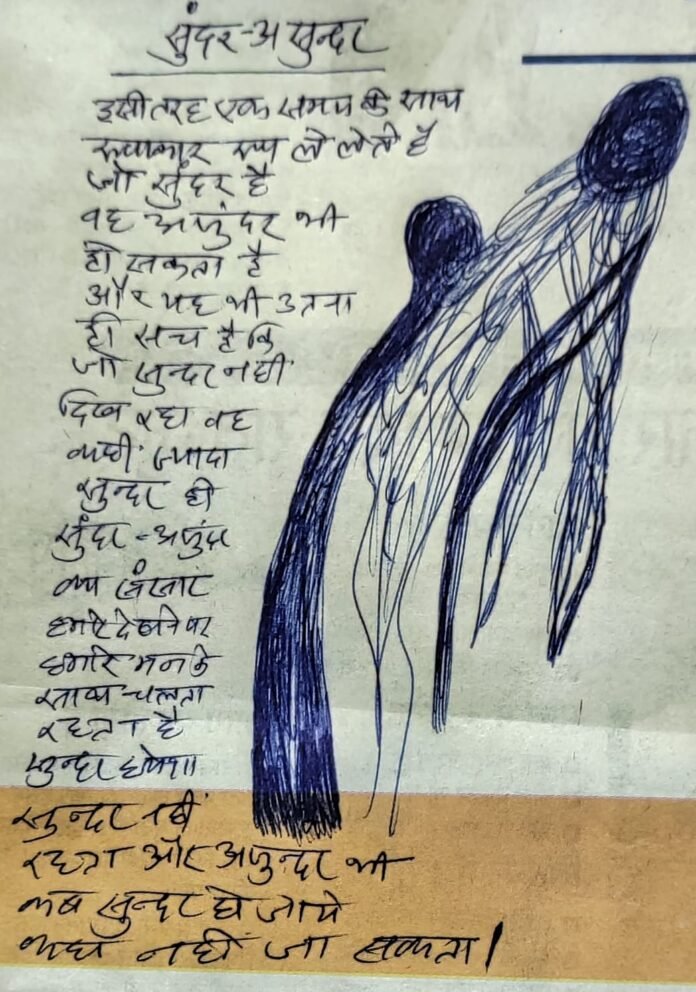 सुंदर-असुन्दर
इसी तरह एक समय के साथ
रूपाकार रूप ले लेते हैं
जो सुंदर है
वह असुंदर भी
हो सकता है
और यह भी उतना
ही सच है कि
जो सुन्दर नहीं
दिख रहा वह
कहीं ज्यादा
सुन्दर हो
सुंदर-असुंदर
का संसार
हमारे देखने पर
हमारे मन के
साथ चलता
रहता है
सुन्दर हमेशा
सुन्दर नहीं
रहता और असुन्दर भी
कब सुन्दर हो जाये
कहा नहीं जा सकता।